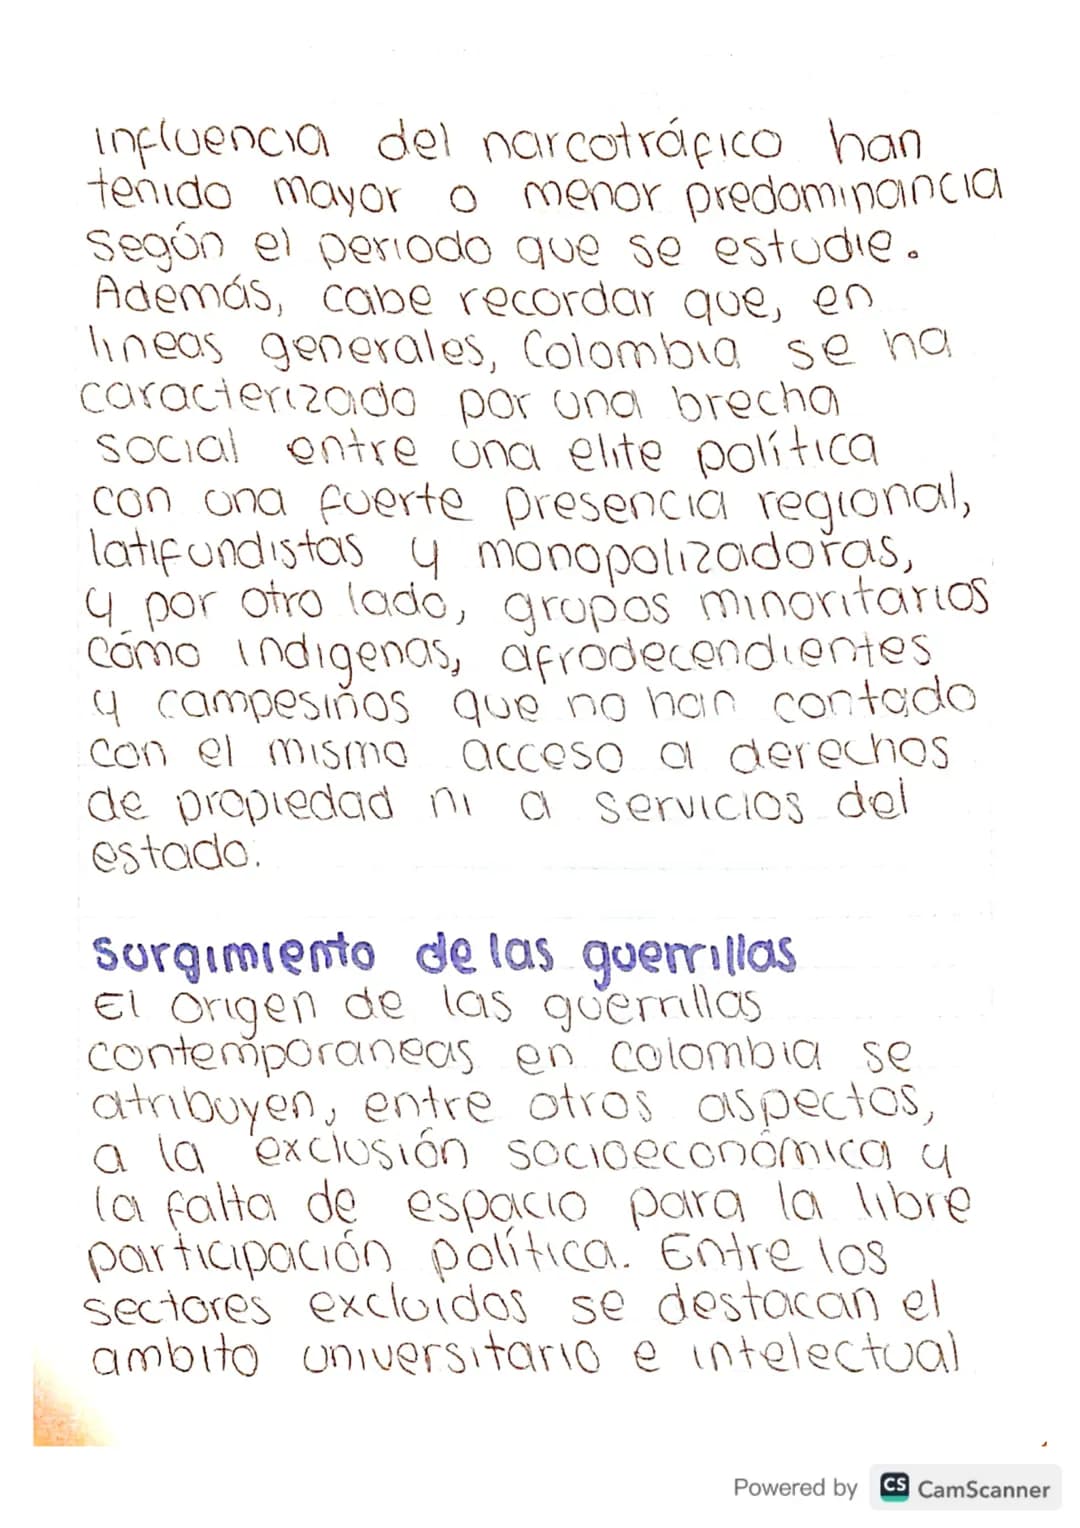 influencia del narcotráfico han
tenido mayor o menor predominancia
según el periodo que se estudie.
Además, cabe recordar que, en
lineas generales, Colombia se ha
caracterizado por una brecha
social entre una elite política
con una fuerte presencia regional,
latifundistas y monopolizadoras,
y por otro lado, grupos minoritarios
cómo indigenas, afrodecendientes
y campesiños que no han contado
con el mismo acceso a derechos
de propiedad ni a servicios del
estado.
Surgimiento de las guerrillas
El origen de las guerrillas
contemporaneas en colombia se
atribuyen, entre otros aspectos,
a la exclusión socioeconómica y
la falta de espacio para la libre
participación política. Entre los
sectores excluidos se destacan el
ambito universitario e intelectual
Powered by CS CamScanner